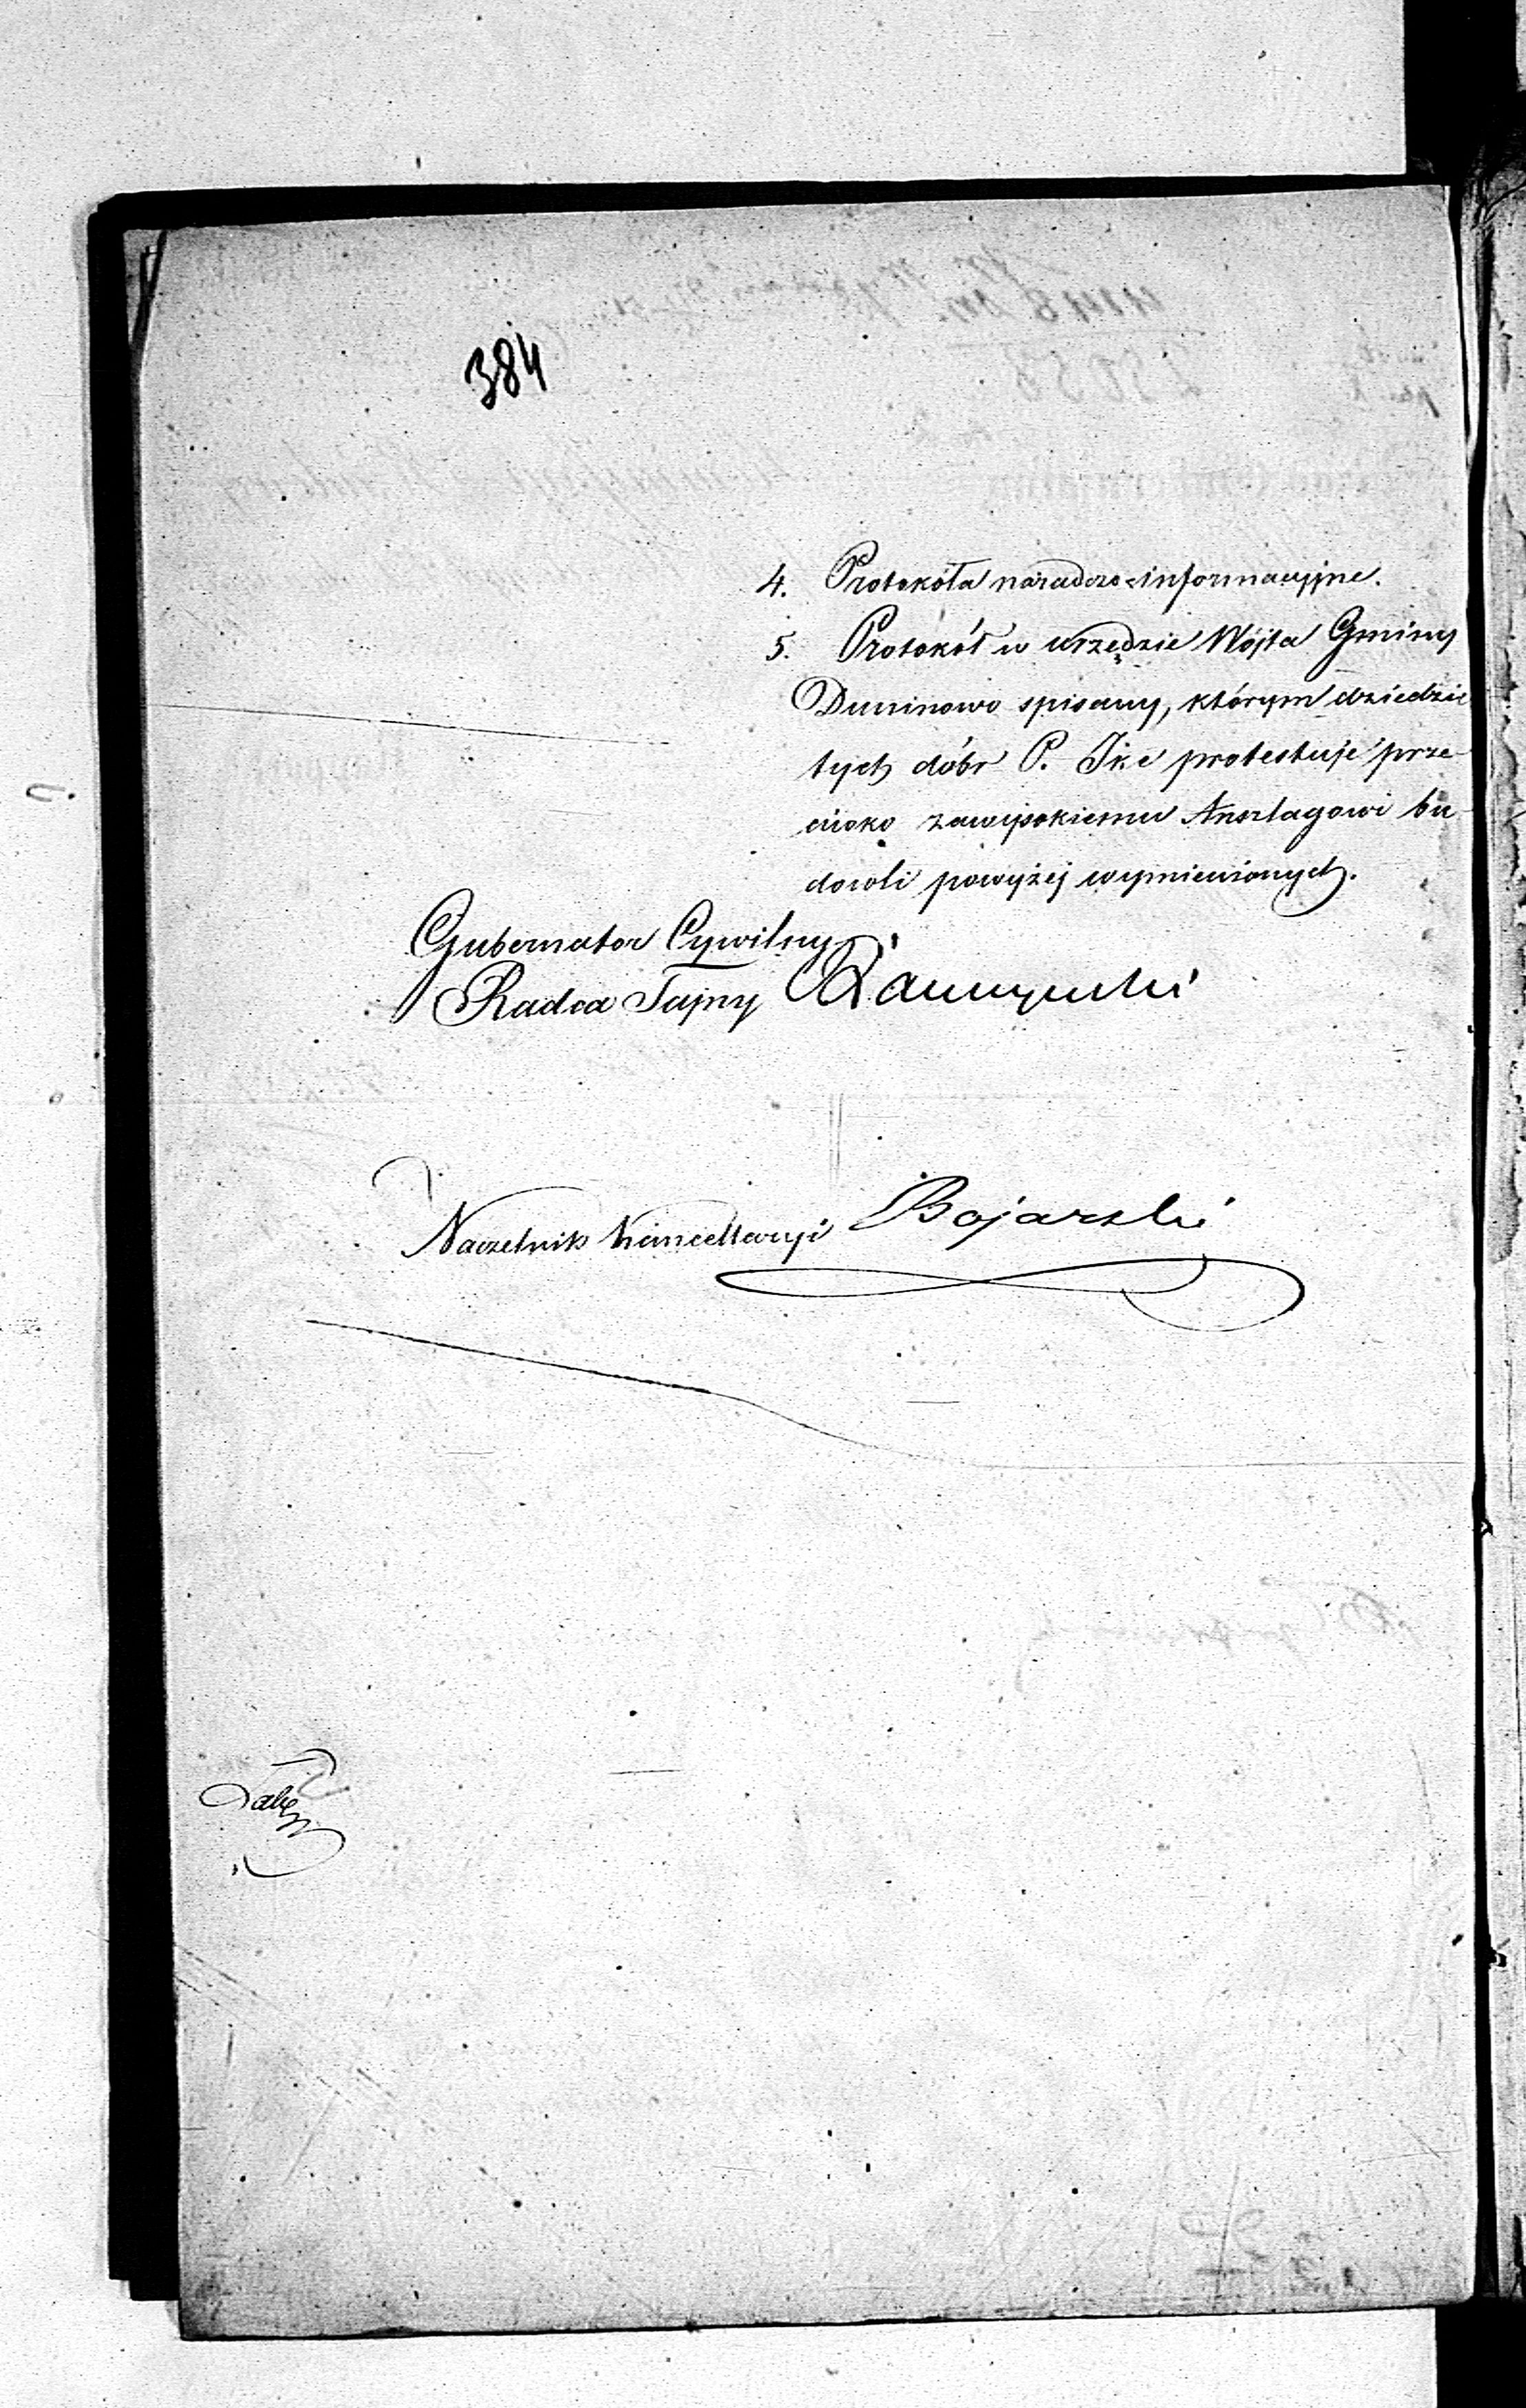 384
4. Protokóła naradczo-informacyjne.
5. Protokół w urzędzie Wójta Gminy
Duninowo spisany, którym dziedzic
tych dóbr P. Ike protestuje prze-
ciwko zawysokiemu Anszlagowi bu-
dowli powyżej wymienionych.
Gubernator Cywilny
Radca Tajny
Naczelnik Kancellaryi Bojarski